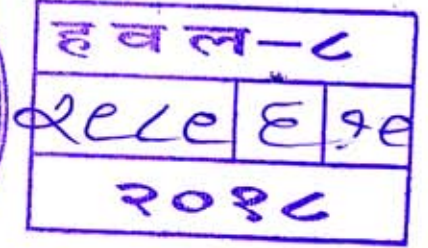 हवल-८
२९८९ ६ १९
२०१८